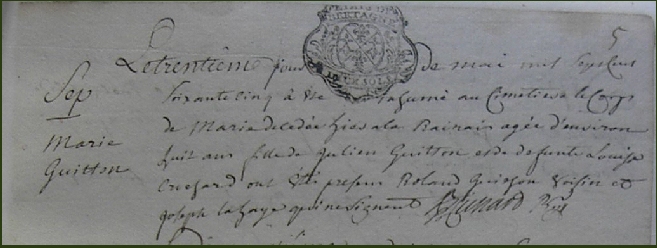 5
BRETAGNE
Sep
Marie
Guitton
Le trentième jour de mai mil sept cent
soixante cinq à été inhumé au Cimetiere le Corps
de Marie decedée hier a la agée d'environ
huit ans fille de Julien Guitton et de defunte Louise
ont été presens Roland voisin et
Joseph la haye qui ne signent